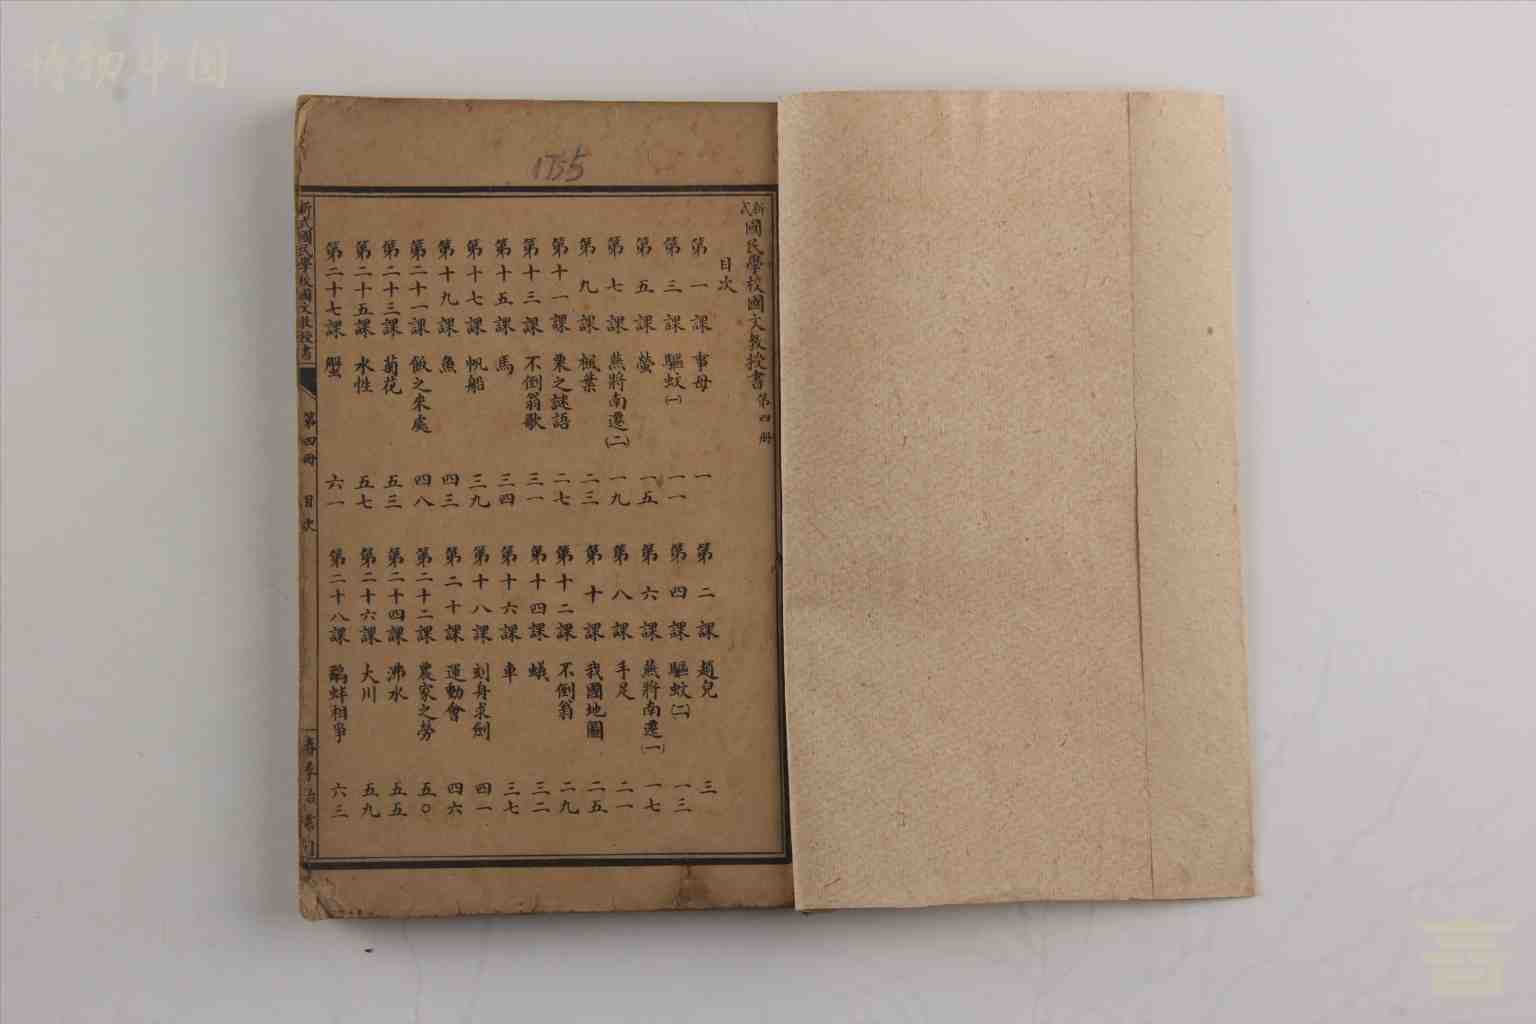 博物中国
1755
新式國民學校國文教授書第四册
目次
第一課 事母 一
第三課 驅蚊(一) 一一
第五課 螢 一五
第七課 燕將南遷(二) 一九
第九課 楓葉 二三
第十一課 栗之謎語 二七
第十三課 不倒翁歌 三一
第十五課 馬 三四
第十七課 帆船 三九
第十九課 魚 四三
第二十一課 飯之來處 四八
第二十三課 菊花 五三
第二十五課 水性 五七
第二十七課 蟹 六一
第二課 趙兒 三
第四課 驅蚊(二) 一三
第六課 燕將南遷(一) 一七
第八課 手足 二一
第十課 我國地圖 二五
第十二課 不倒翁 二九
第十四課 蟻 三二
第十六課 車 三七
第十八課 刻舟求劍 四一
第二十課 運動會 四六
第二十二課 農家之勞 五〇
第二十四課 沸水 五五
第二十六課 大川 五九
第二十八課 鷸蚌相爭 六三
新式國民學校國文教授書 第四冊 目次 春季始業用